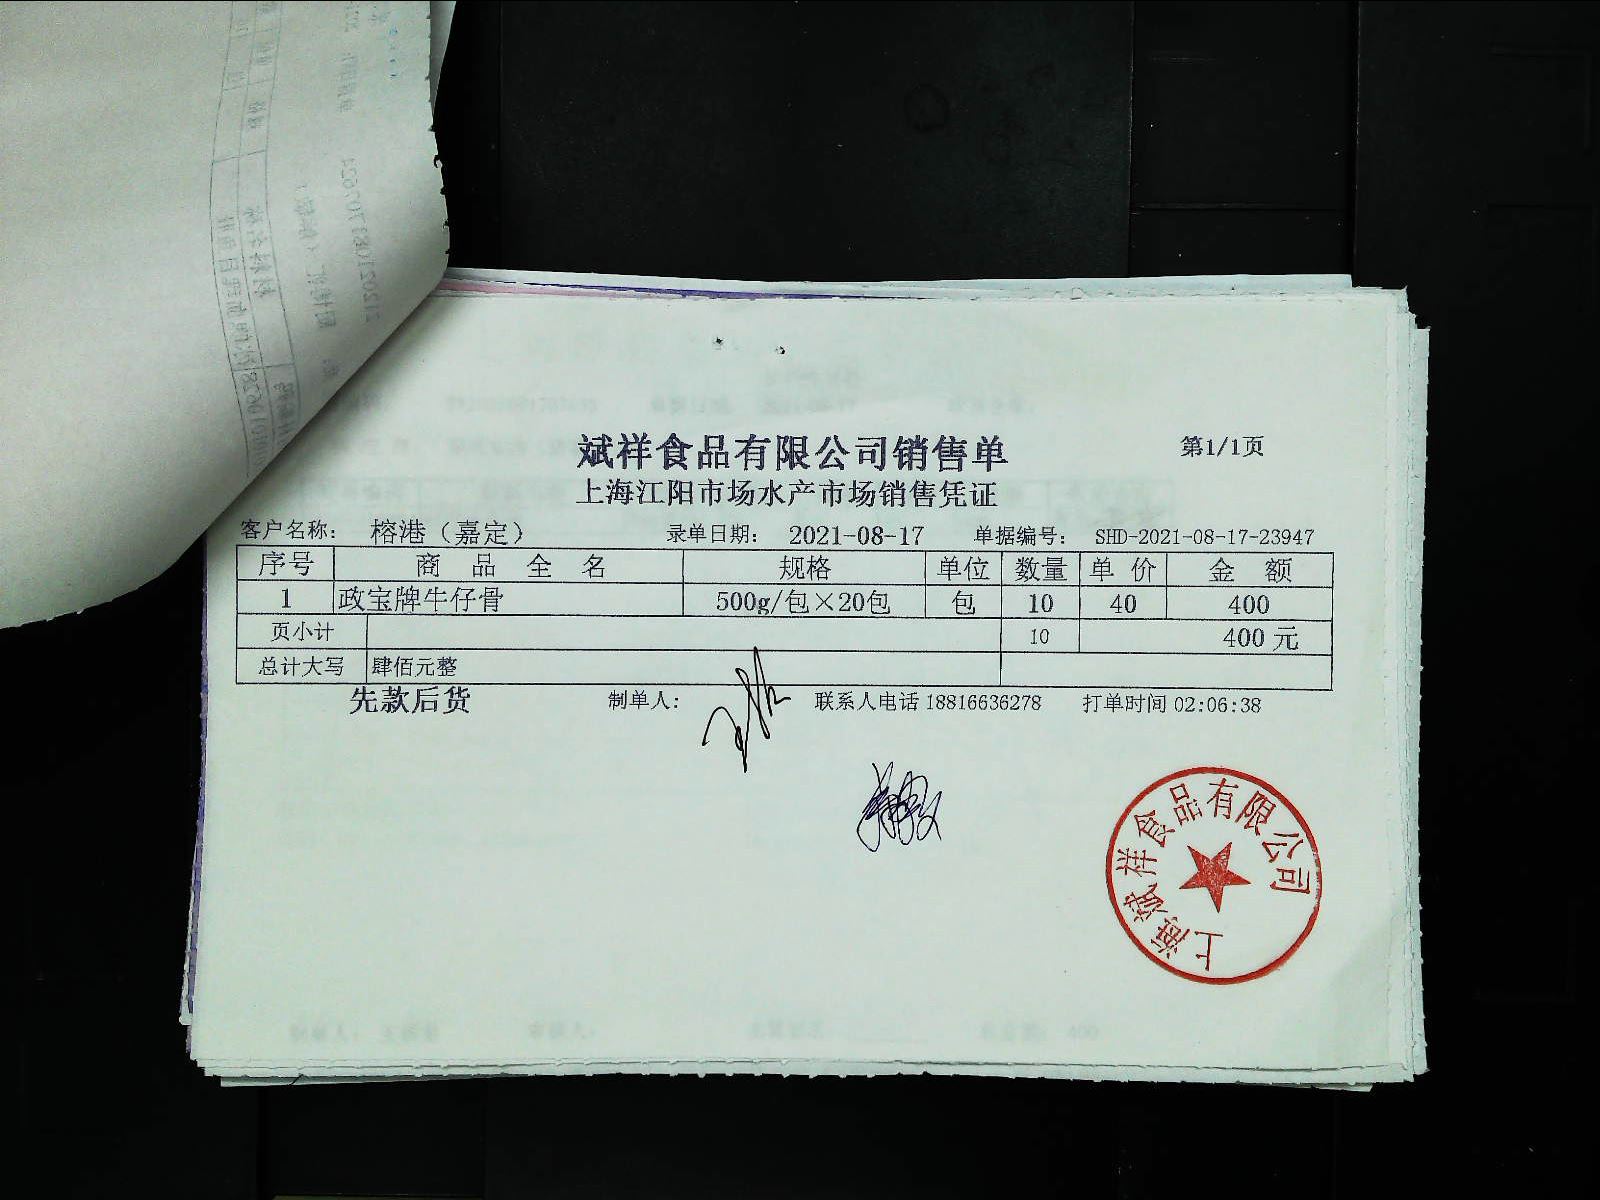 斌祥食品有限公司销售单 第1/1页
上海江阳市场水产市场销售凭证
客户名称： 榕港（嘉定） 录单日期： 2021-08-17 单据编号： SHD-2021-08-17-23947
序号 商 品 全 名 规格 单位 数量 单 价 金 额
1 政宝牌牛仔骨 500g/包×20包 包 10 40 400
页小计 10 400 元
总计大写 肆佰元整
先款后货 制单人： 联系人电话 18816636278 打单时间 02:06:38
上海斌祥食品有限公司